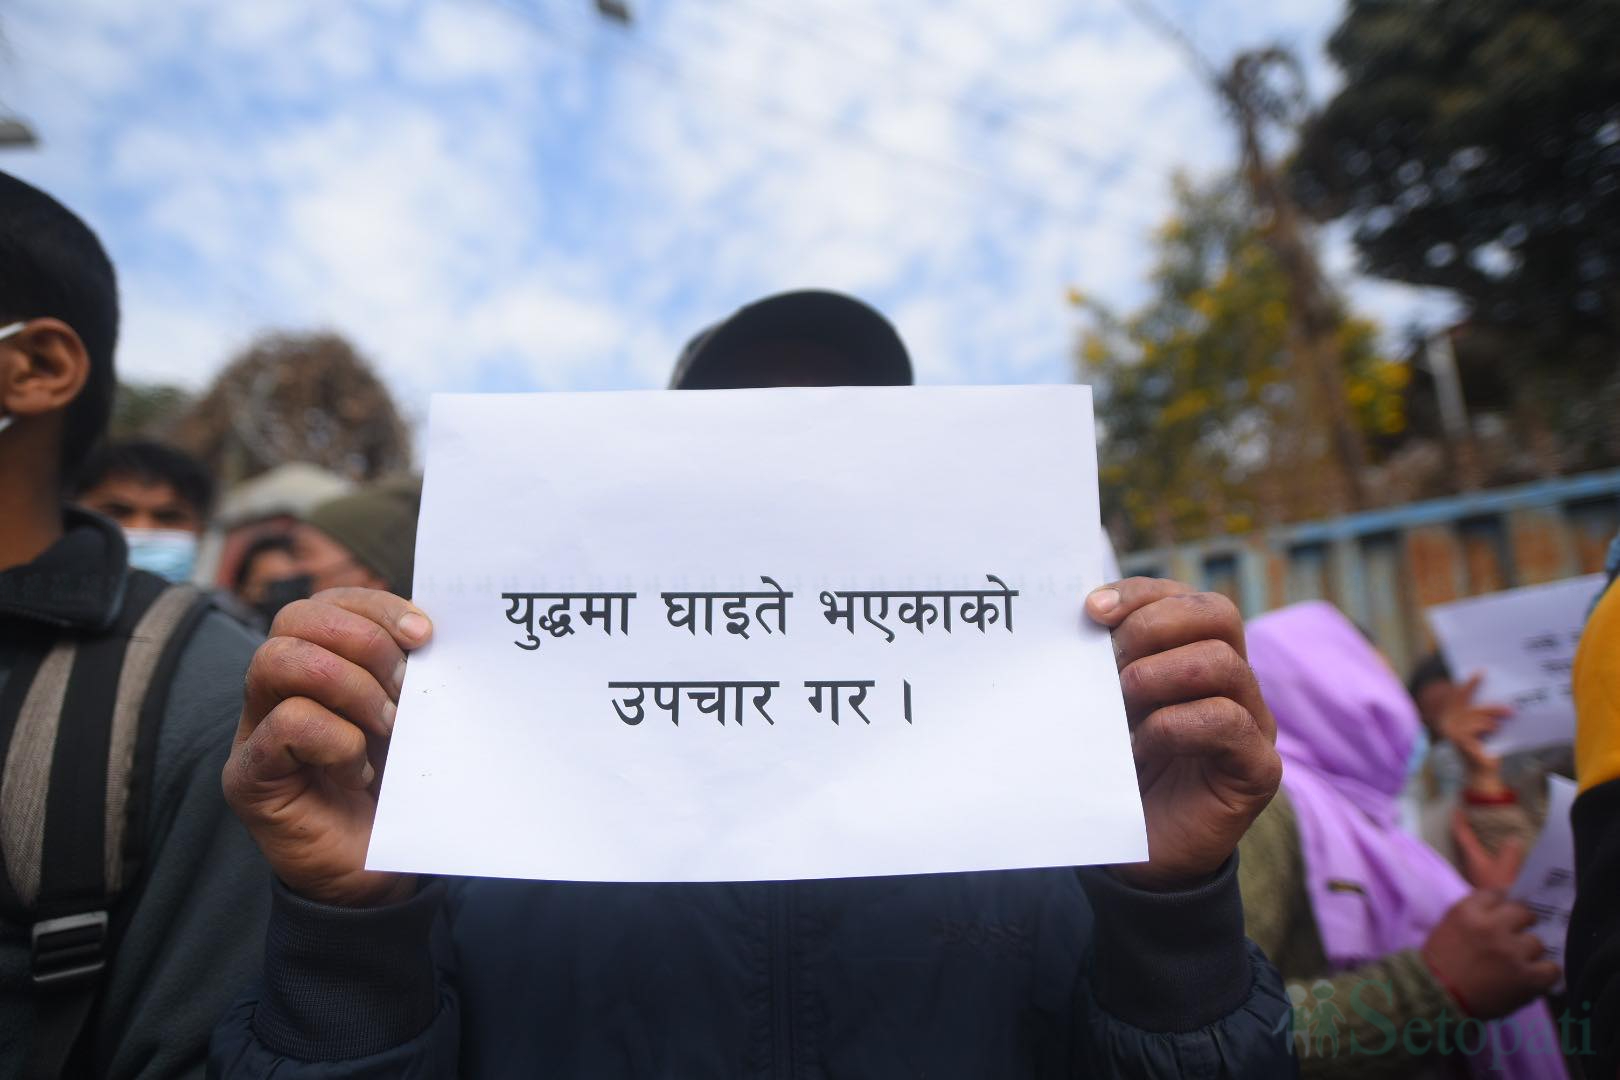 युद्धमा घाइते भएकाको
उपचार गर ।
Setopati